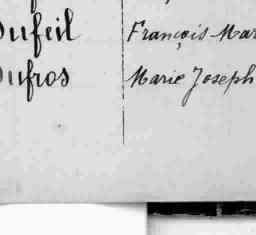 Dufeil François Mar
Dufros Marie Joseph